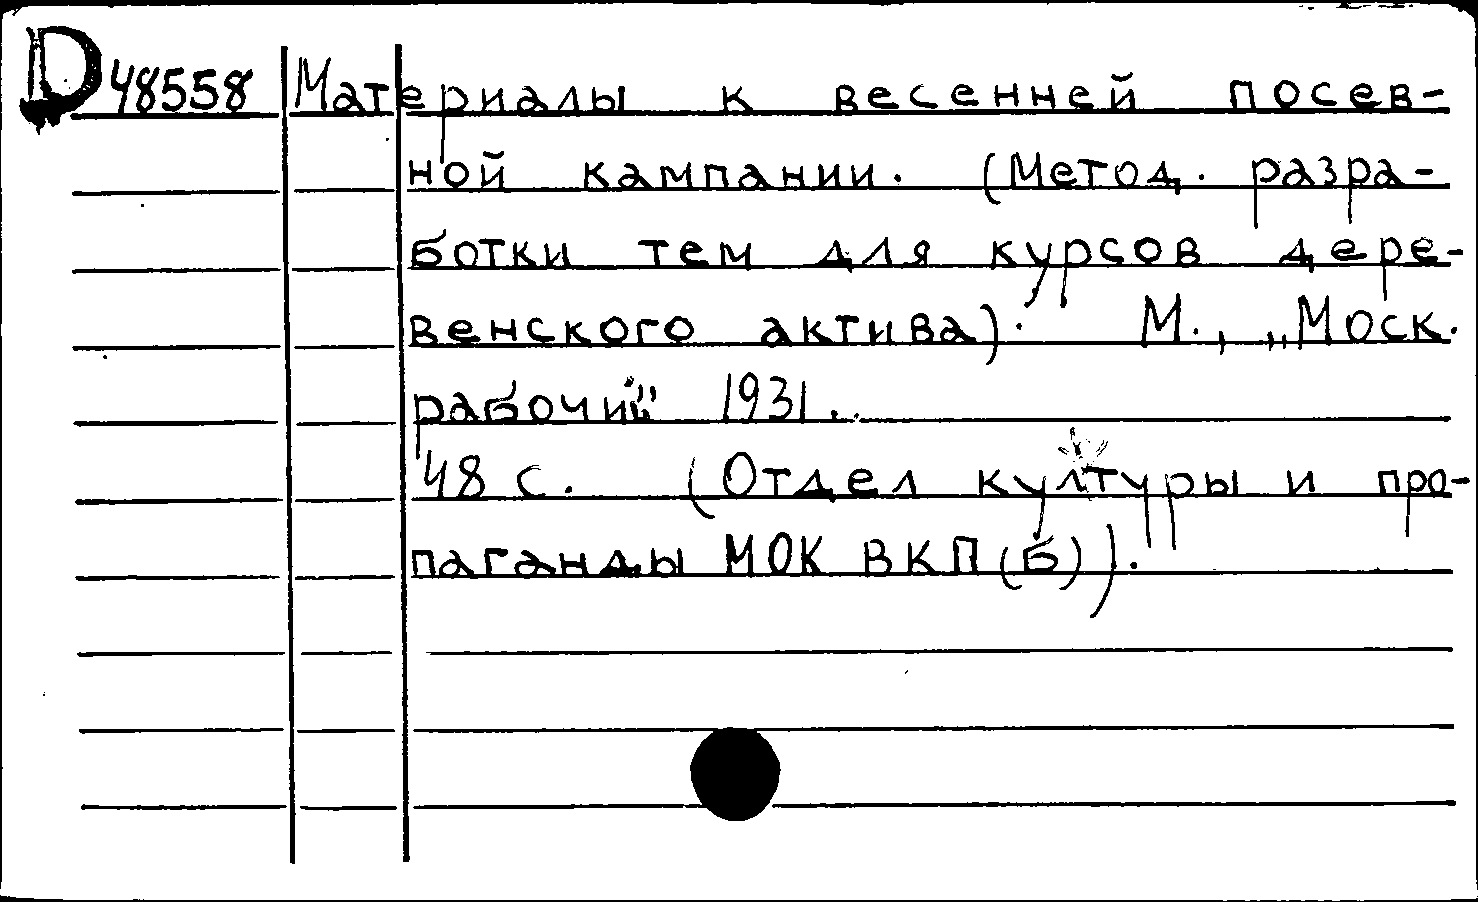 D 48558 Материалы к весенней посев-
ной кампании. (Метод. разра-
ботки тем для курсов дере-
венского актива). М., „Моск.
рабочий" 1931.
48 с. (Отдел културы и про-
паганды МОК ВКП(б)).